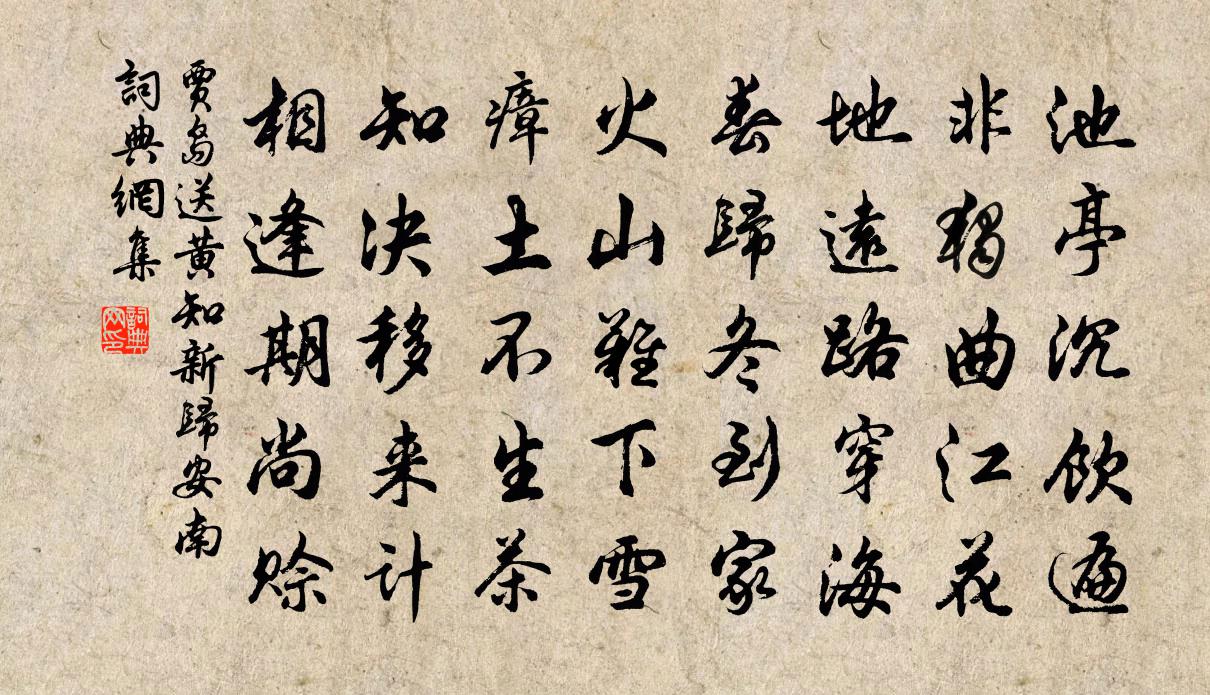 池亭沉饮遍
非独曲江花
地远路穿海
春歸冬到家
火山难下雪
瘴土不生茶
知决移来计
相逢期尚赊
賈岛送黄知新歸安南
詞典網集
詞典网印